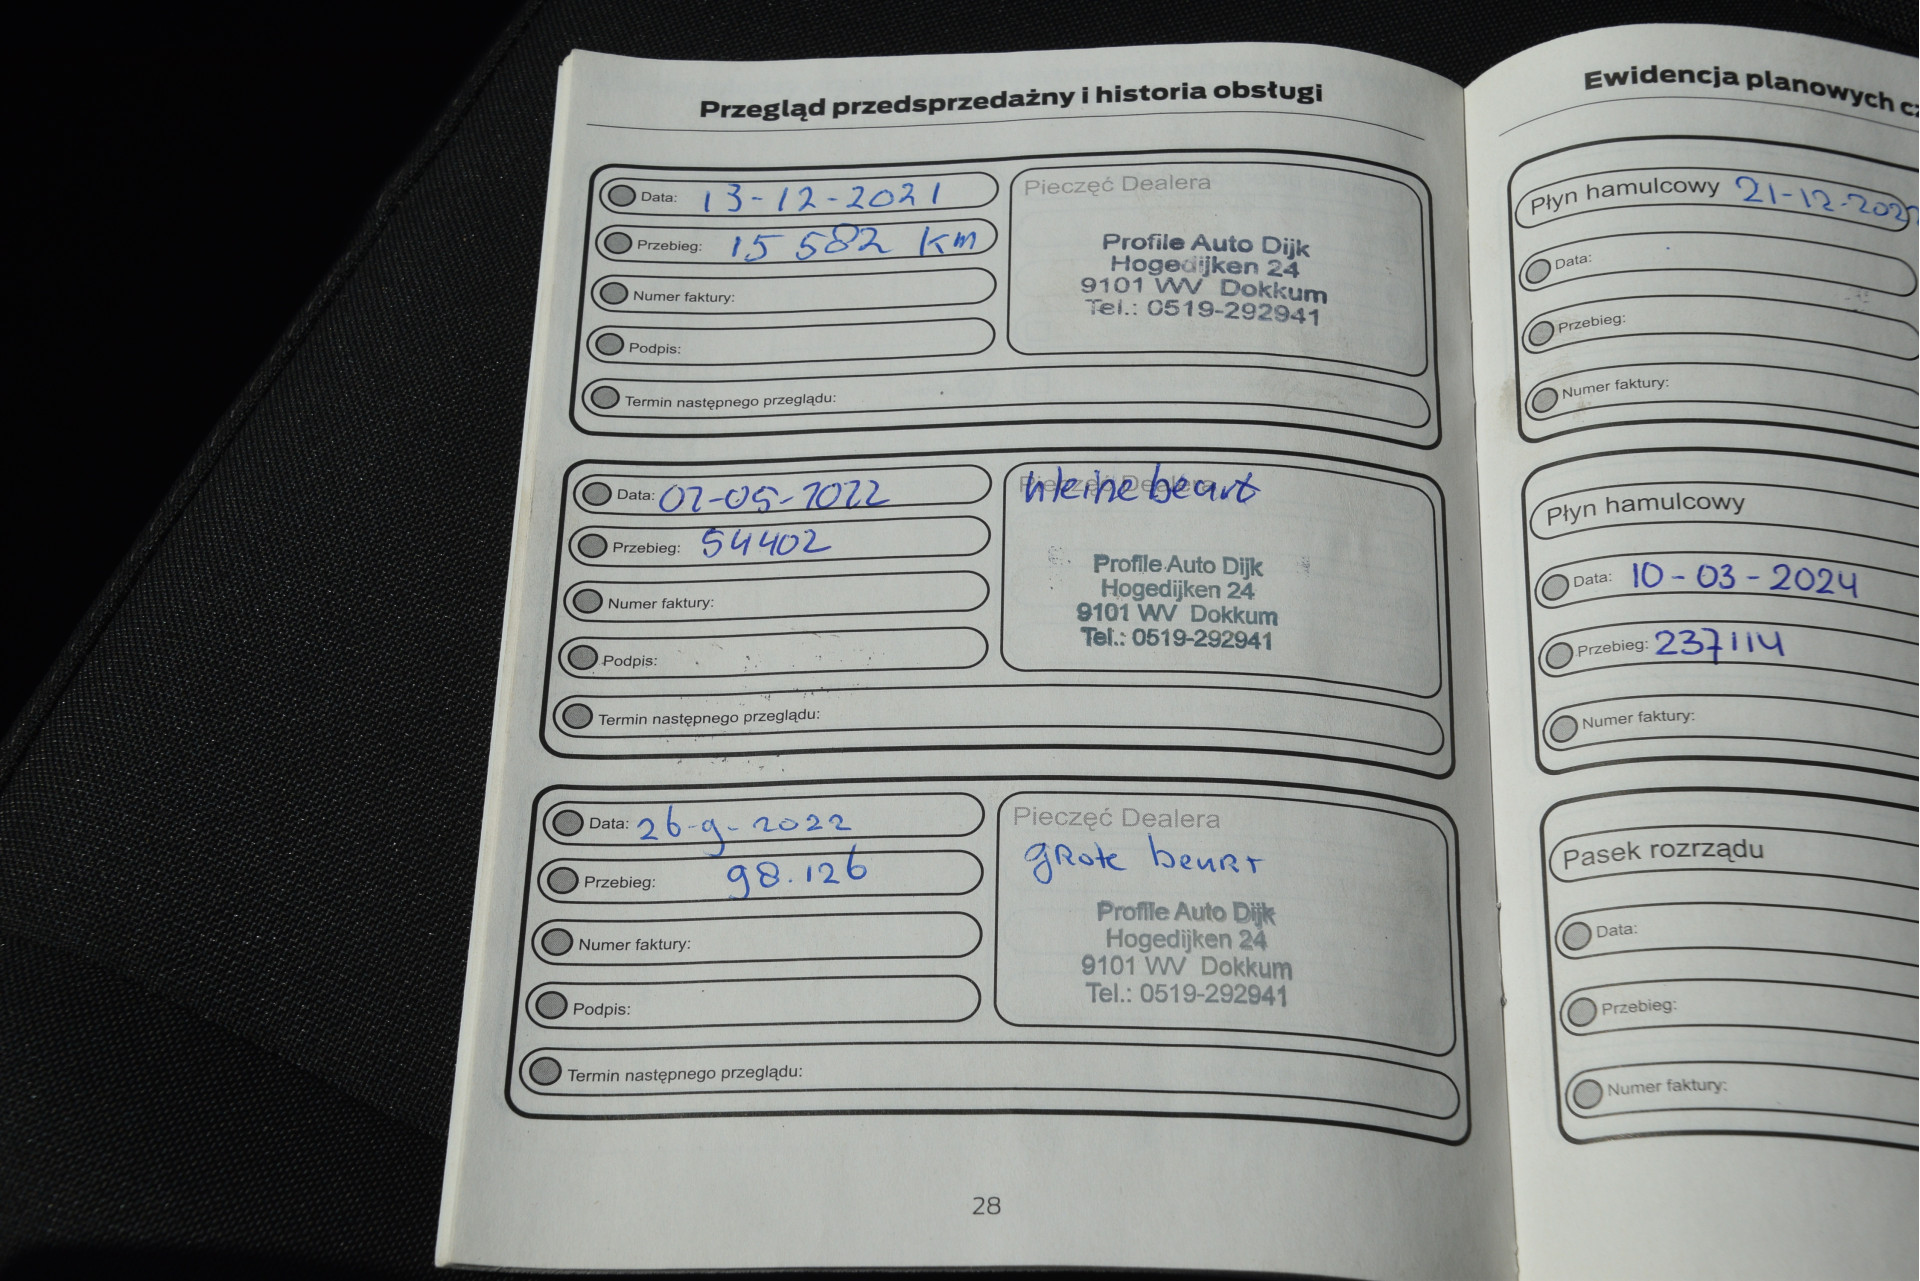 Przegląd przedsprzedażny i historia obsługi
Data: 13-12-2021
Przebieg: 15 582 km
Numer faktury:
Podpis:
Termin następnego przeglądu:
Pieczęć Dealera
Profile Auto Dijk
Hogedijken 24
9101 WV Dokkum
Tel.: 0519-292941
Data: 02-05-2022
Przebieg: 54402
Numer faktury:
Podpis:
Termin następnego przeglądu:
Pieczęć Dealera
kleine beurt
Profile Auto Dijk
Hogedijken 24
9101 WV Dokkum
Tel.: 0519-292941
Data: 26-9-2022
Przebieg: 98.126
Numer faktury:
Podpis:
Termin następnego przeglądu:
Pieczęć Dealera
grote beurt
Profile Auto Dijk
Hogedijken 24
9101 WV Dokkum
Tel.: 0519-292941
28
Ewidencja planowych
Płyn hamulcowy
Data:
Przebieg:
Numer faktury:
Płyn hamulcowy
Data: 10-03-2024
Przebieg: 237114
Numer faktury:
Pasek rozrządu
Data:
Przebieg:
Numer faktury: